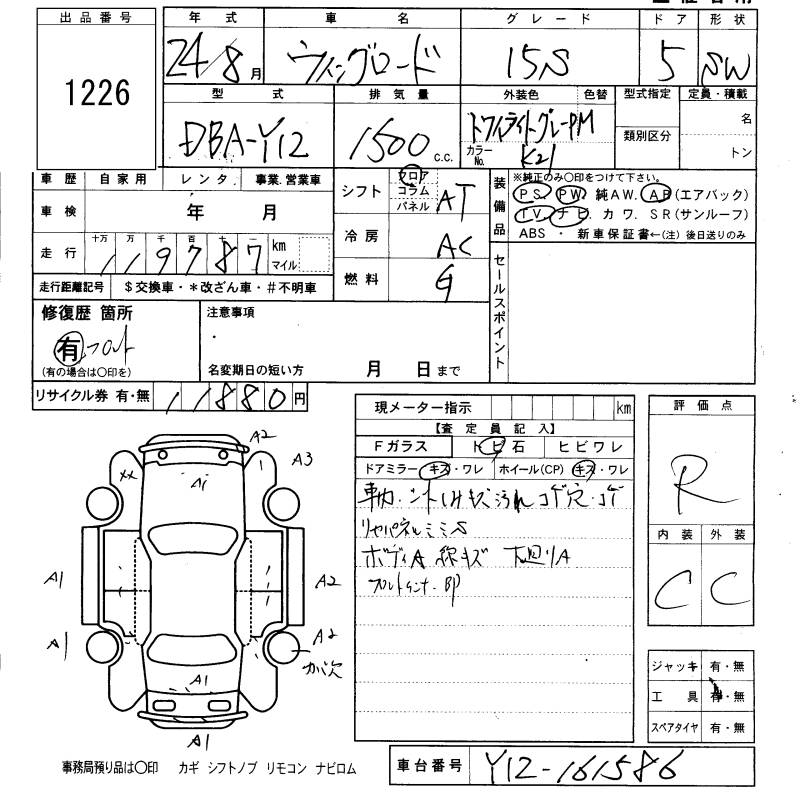 出品番号
1226
年式 車名 グレード ドア 形状
24/8月 ウィングロード 15S 5 SW
型式 排気量 外装色 色替 型式指定 定員・積載
DBA-Y12 1500 c.c. トワイライトグレーPM 類別区分 名
カラーNo. K21 トン
車歴 自家用 レンタ 事業.営業車
車検 年 月
走行 十万 万 千 百 十 一 119787 km マイル
走行距離記号 $交換車・*改ざん車・#不明車
シフト フロア コラム パネル AT
冷房 AC
燃料 G
装備品 ※純正のみ〇印をつけて下さい。
PS. PW. 純AW. AB(エアバック)
TV. ナビ. カワ. SR(サンルーフ)
ABS ・ 新車保証書←(注) 後日送りのみ
セールスポイント
修復歴 箇所
有 フロント
(有の場合は〇印を)
注意事項
名変期日の短い方 月 日まで
リサイクル券 有・無 11880円
現メーター指示 km
【査定員記入】
Fガラス トビ石 ヒビワレ
ドアミラー キズ・ワレ ホイール(CP) キズ・ワレ
車内・シート
リヤパネル
ボディA 線キズ 下回りA
評価点
R
内装 外装
C C
ジャッキ 有・無
工具 有・無
スペアタイヤ 有・無
A2
XX A1 A3
A1 A2
A1 A2
ガリ
A1
A1
事務局預り品は〇印 カギ シフトノブ リモコン ナビロム
車台番号 Y12-161586